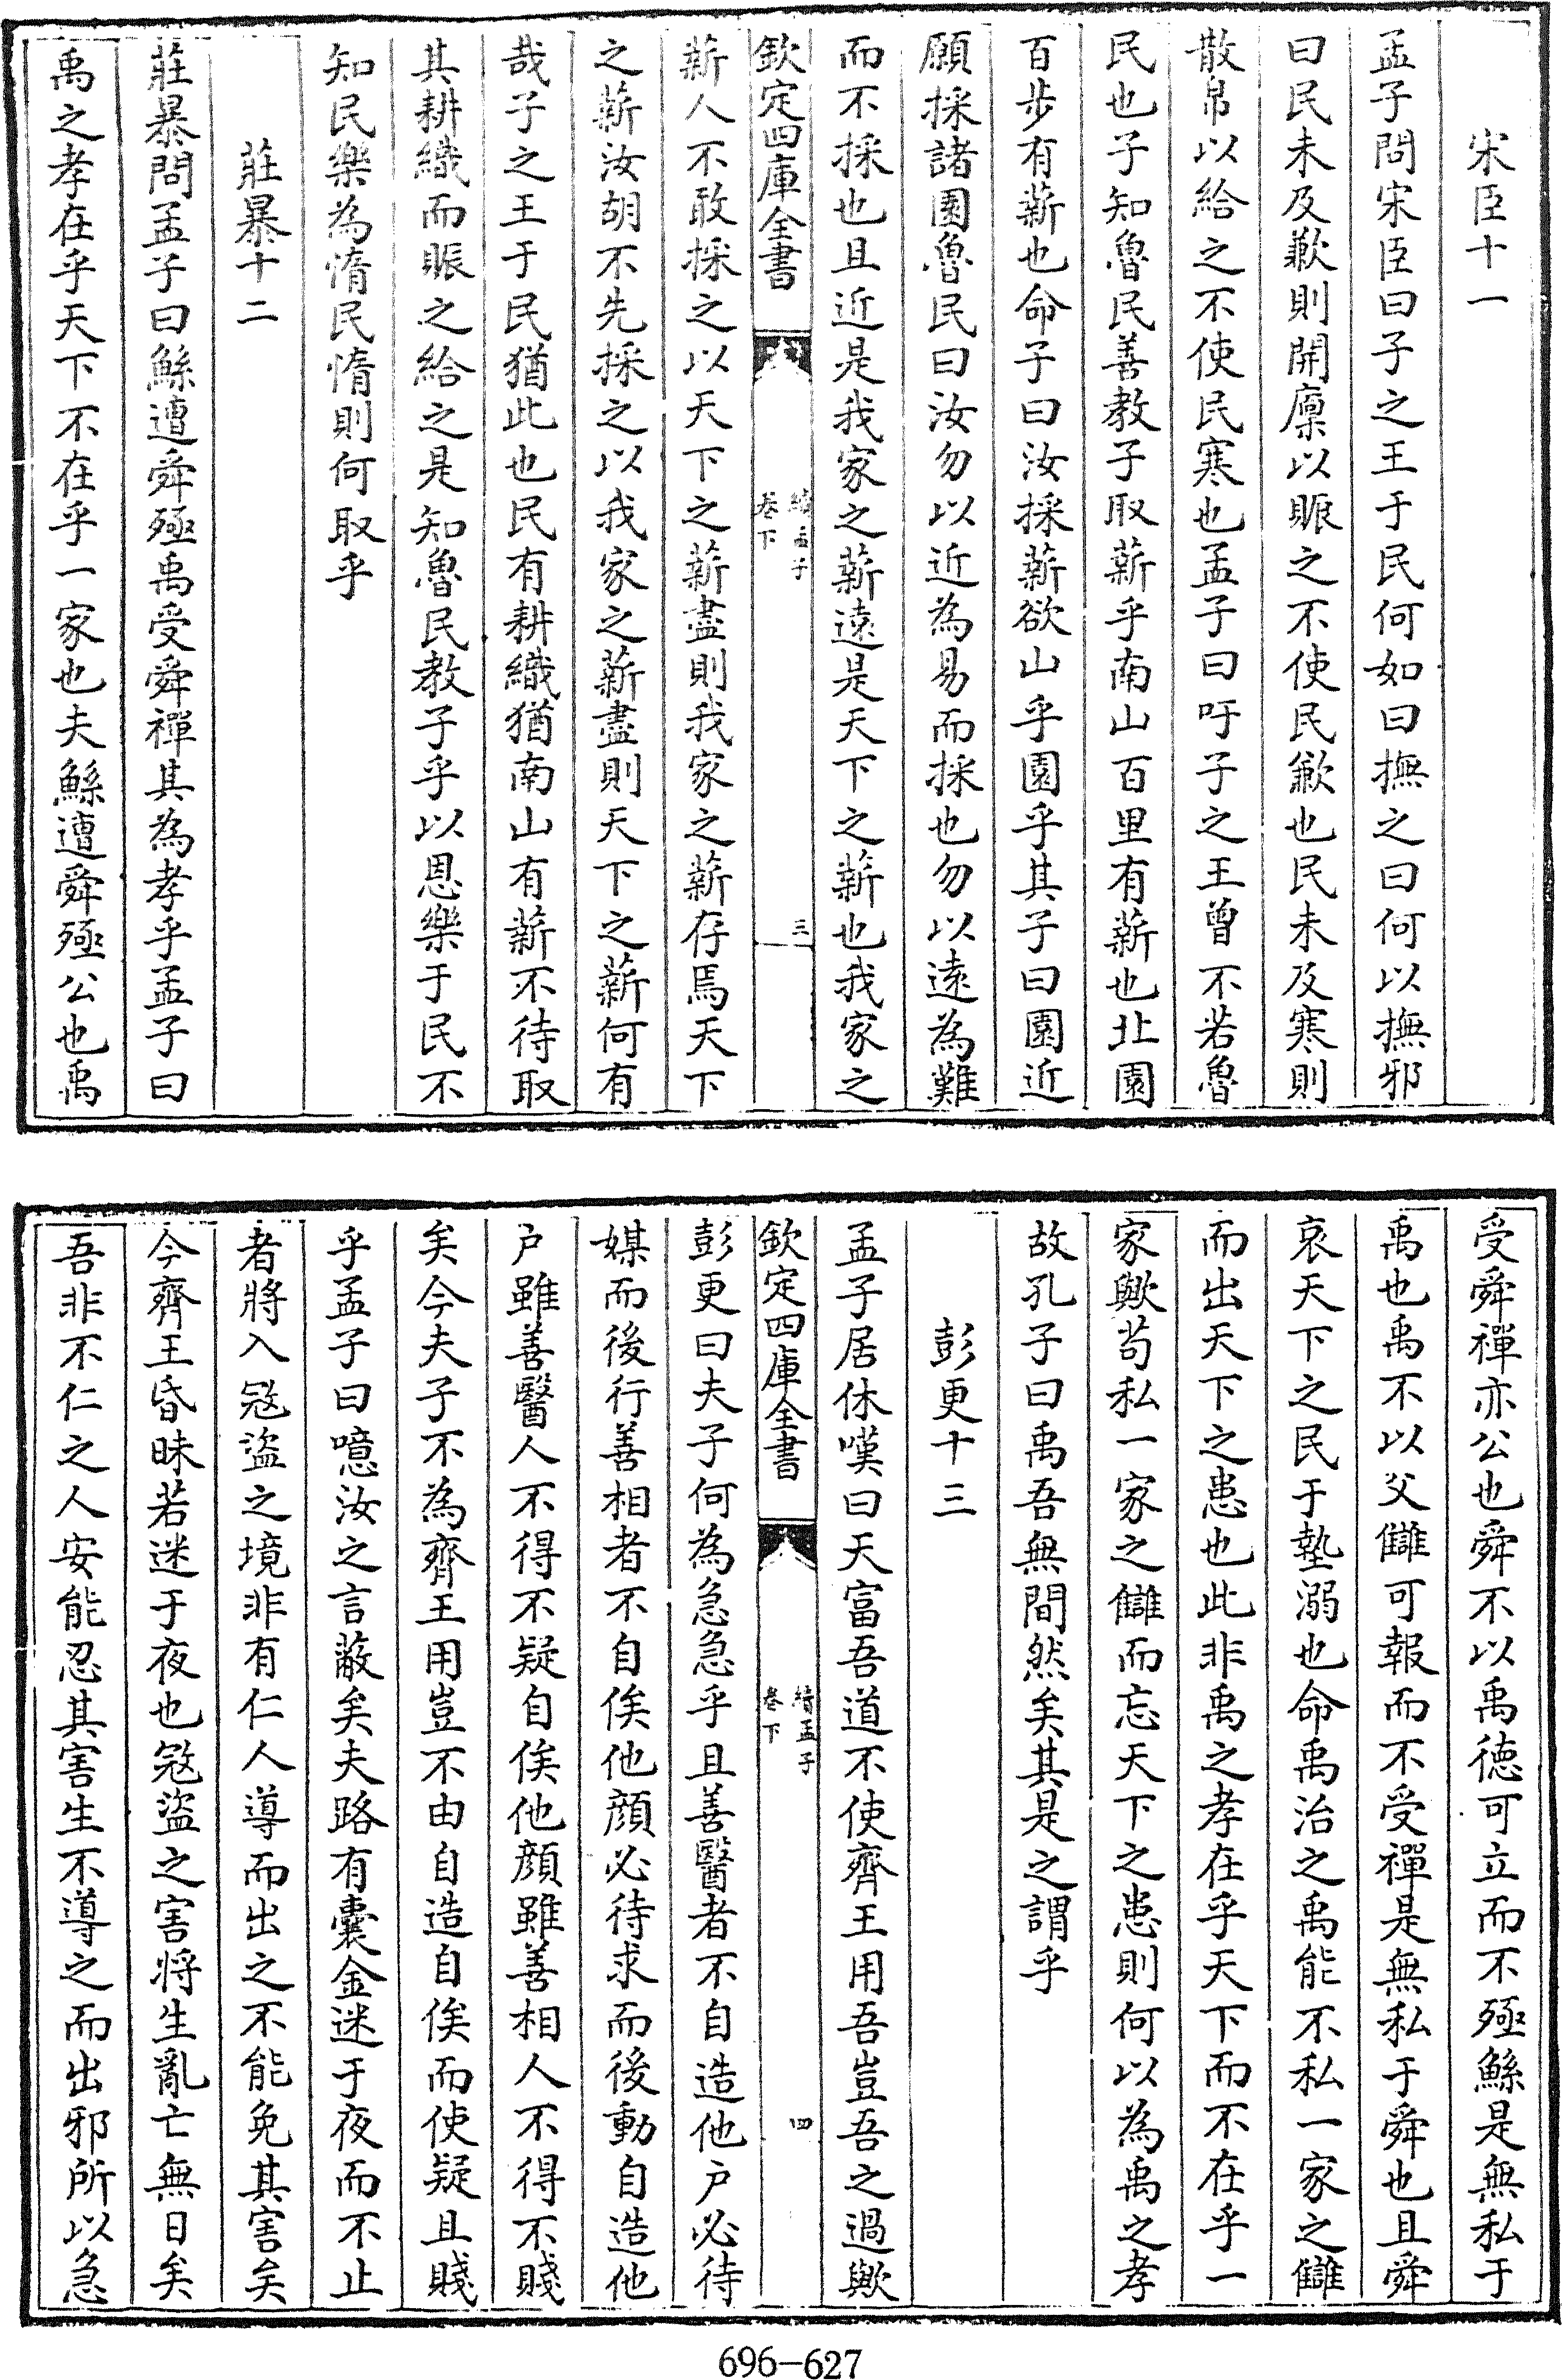 宋臣十一
孟子問宋臣曰子之王于民何如曰撫之曰何以撫邪
曰民未及歉則開廪以賑之不使民歉也民未及寒則
散帛以給之不使民寒也孟子曰吁子之王曾不若魯
民也子知魯民善教子取薪乎南山百里有薪也北園
百步有薪也命子曰汝採薪欲山乎園乎其子曰園近
願採諸園魯民曰汝勿以近為易而採也勿以遠為難
而不採也且近是我家之薪遠是天下之薪也我家之
欽定四庫全書
續孟子
卷下
三
薪人不敢採之以天下之薪盡則我家之薪存焉天下
之薪汝胡不先採之以我家之薪盡則天下之薪何有
哉子之王于民猶此也民有耕織猶南山有薪不待取
其耕織而賑之給之是知魯民教子乎以恩樂于民不
知民樂為惰民惰則何取乎
莊暴十二
莊暴問孟子曰鯀遭舜殛禹受舜禪其為孝乎孟子曰
禹之孝在乎天下不在乎一家也夫鯀遭舜殛公也禹
受舜禪亦公也舜不以禹德可立而不殛鯀是無私于
禹也禹不以父讎可報而不受禪是無私于舜也且舜
哀天下之民于墊溺也命禹治之禹能不私一家之讎
而出天下之患也此非禹之孝在乎天下而不在乎一
家歟苟私一家之讎而忘天下之患則何以為禹之孝
故孔子曰禹吾無間然矣其是之謂乎
彭更十三
孟子居休嘆曰天富吾道不使齊王用吾豈吾之過歟
欽定四庫全書
續孟子
卷下
四
彭更曰夫子何為急急乎且善醫者不自造他户必待
媒而後行善相者不自俟他顔必待求而後動自造他
户雖善醫人不得不疑自俟他顔雖善相人不得不賤
矣今夫子不為齊王用豈不由自造自俟而使疑且賤
乎孟子曰噫汝之言蔽矣夫路有囊金迷于夜而不止
者將入宼盜之境非有仁人導而出之不能免其害矣
今齊王昏昧若迷于夜也宼盜之害將生亂亡無日矣
吾非不仁之人安能忍其害生不導之而出邪所以急
696-627